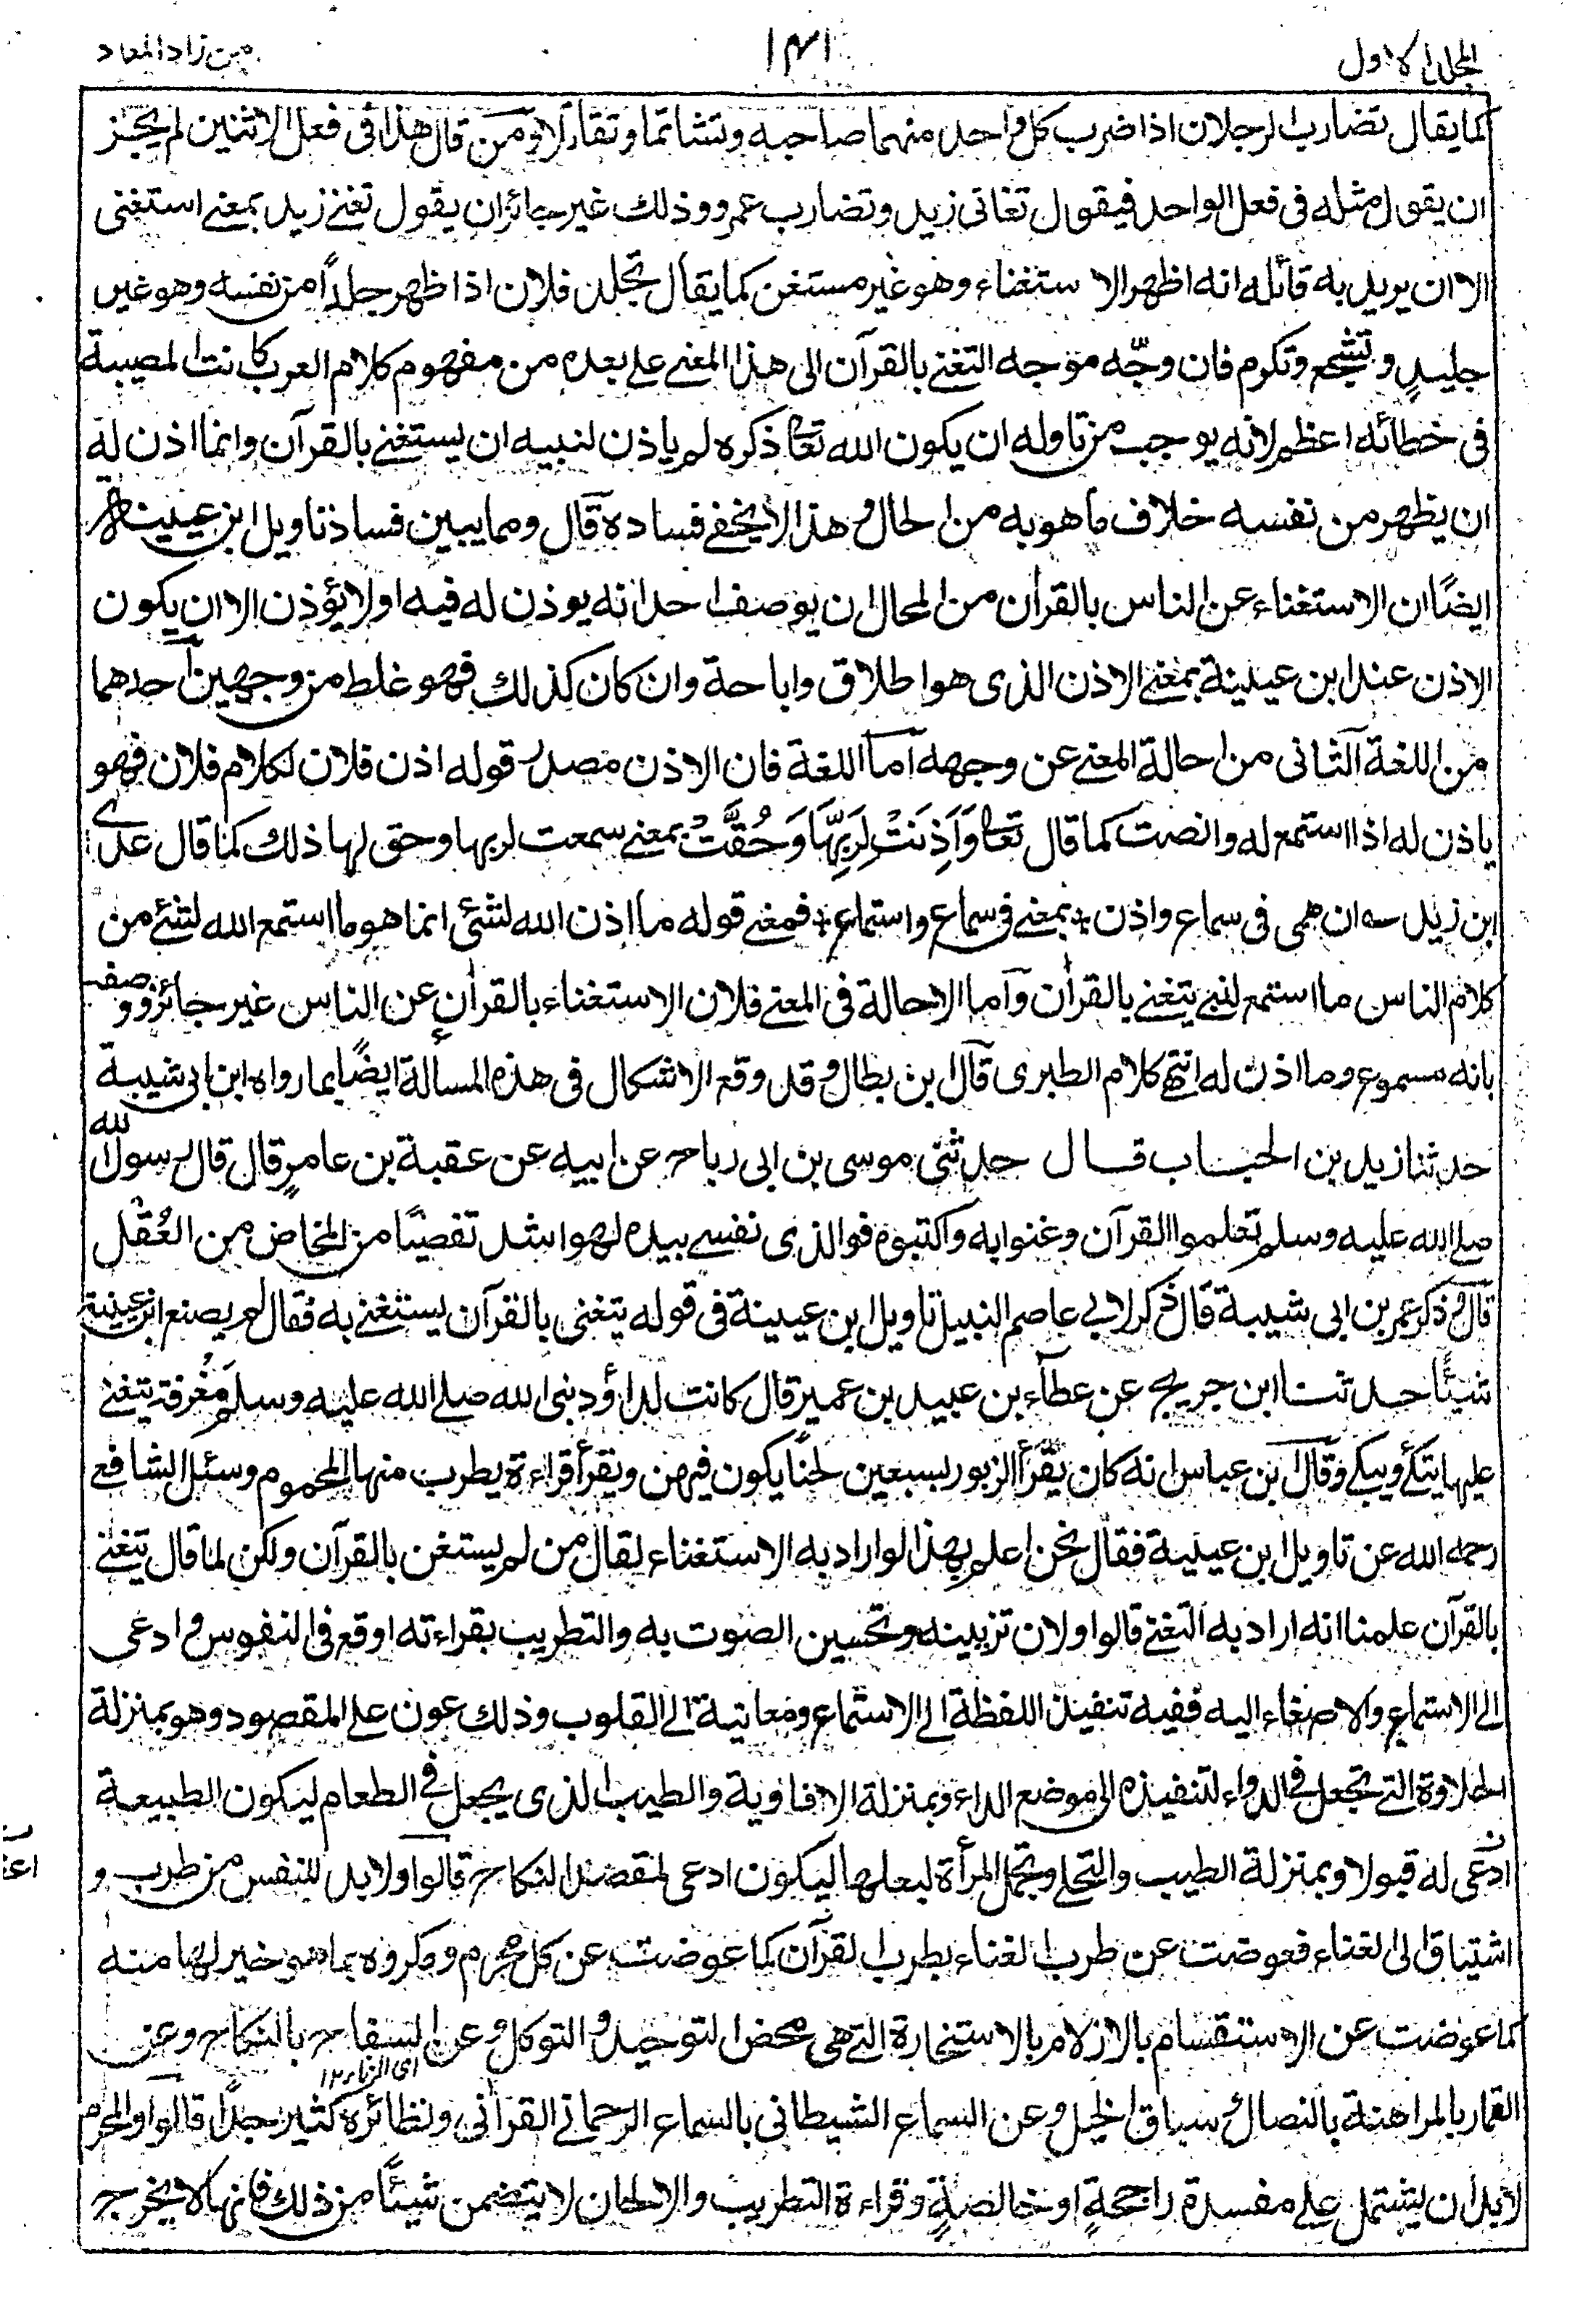 المجلد الاول
١٣١
من زاد المعاد
كما يقال تضارب الرجلان اذا ضرب كل واحد منهما صاحبه وتشاتما وتقاتلا ومن قال هذا فى فعل الاثنين لم يجز
ان يقول مثله فى فعل الواحد فيقول تغانى زيد وتضارب عمرو وذلك غير جائز ان يقول تغنے زيد بمعنے استغنى
الا ان يريد به قائله انه اظهر الاستغناء وهو غير مستغن كما يقال تجلد فلان اذا ظهر جلدًا من نفسه وهو غير
جليدٍ وتشجع وتكرم فان وجّه موجه التغنے بالقرآن الى هذا المعنے علے بعده من مفهوم كلام العرب كانت المصيبة
فى خطائه اعظم لانه يوجب من تاوله ان يكون الله تعا ذكره لم ياذن لنبيه ان يستغنے بالقرآن وانما اذن له
ان يظهر من نفسه خلاف ما هو به من الحال و هذا لا يخفے فساده قال ومما يبين فساد تاويل ابن عيينة
ايضًا ان الاستغناء عن الناس بالقراٰن من المحال ان يوصف احد انه يوذن له فيه او لا يؤذن الا ان يكون
الاذن عند ابن عيينة بمعنے الاذن الذى هو اطلاق واباحة وان كان كذلك فهو غلط من وجهين احدهما
من اللغة الثانى من احالة المعنے عن وجهه اما اللغة فان الاذن مصدر قوله اذن فلان لكلام فلان فهو
ياذن له اذا استمع له وانصت كما قال تعا وَاَذِنَتْ لِرَبِّهَا وَحُقَّتْ بمعنے سمعت لربها وحق لها ذلك كما قال عدے
ابن زيد ؎ ان همى فى سماع واذن ؞ بمعنے فى سماع واستماع ؞ فمعنے قوله ما اذن الله لشئى انما هو ما استمع الله لشئے من
كلام الناس ما استمع لنبے يتغنے بالقراٰن واما الاحالة فى المعنے فلان الاستغناء بالقراٰن عن الناس غير جائز وصفه
بانه مسموع وما اذن له انتهے كلام الطبرى قال ابن بطال وقد وقع الاشكال فى هذه المسالة ايضًا بما رواه ابن ابى شيبة
حدثنا زيد بن الحباب قال حدثنى موسى بن ابى رباح عن ابيه عن عقبة بن عامرٍ قال قال رسول الله
صلے الله عليه وسلم تعلموا القرآن وغنوا به واكتبوه فوالذى نفسے بيده لهو اشد تفصيًا من المخاض من العُقُل
قال و ذكر عمر بن ابى شيبة قال ذكر لابے عاصم النبيل تاويل ابن عيينة فى قوله يتغنى بالقرآن يستغنے به فقال لم يصنع ابن عيينة
شيئًا حدثنا ابن جريج عن عطاء بن عبيد بن عمير قال كانت لداؤد نبى الله صلے الله عليه وسلم مغرفة يتغنے
عليها يتكئ ويبكے وقال ابن عباس انه كان يقرأ الزبور بسبعين لحنًا يكون فيهن ويقرأ قراءة يطرب منها المحموم وسئل الشافعے
رحمه الله عن تاويل ابن عيينة فقال نحن اعلم بهذا لو اراد به الاستغناء لقال من لم يستغن بالقرآن ولكن لما قال يتغنے
بالقرآن علمنا انه اراد به التغنے قالوا ولان تزيينه وتحسين الصوت به والتطريب بقراءته اوقع فى النفوس و ادعى
الے الاستماع والاصغاء اليه ففيه تنفيذ اللفظة الے الاستماع ومعانيه الے القلوب وذلك عون علے المقصود وهو بمنزلة
الحلاوة التے تجعل فى الدواء لتنفيذه الى موضع الداء وبمنزلة الافاوية والطيب الذى يجعل فى الطعام ليكون الطبيعة
ادعى له قبولا وبمنزلة الطيب والتحلے وتجمل المرأة لبعلها ليكون ادعى لمقصد النكاح قالوا ولا بد للنفس من طرب و
اشتياق الى الغناء فعوضت عن طرب الغناء بطرب القرآن كما عوضت عن كل محرم ومكروه بما هو خير لها منه
كما عوضت عن الاستقسام بالازلام بالاستخارة التے هى محض التوحيد والتوكل وعن السفاح بالنكاح وعن
اى الزنا ١٢
القمار بالمراهنة بالنصال و سباق الخيل وعن السماع الشيطانى بالسماع الرحمانے القرآنى ونظائره كثير جدًا قالوا والمحرم
لا بد ان يشتمل علے مفسدة راجحةٍ او خالصةٍ وقراءة التطريب والالحان لا يتضمن شيئًا من ذلك فانها لا يخرج